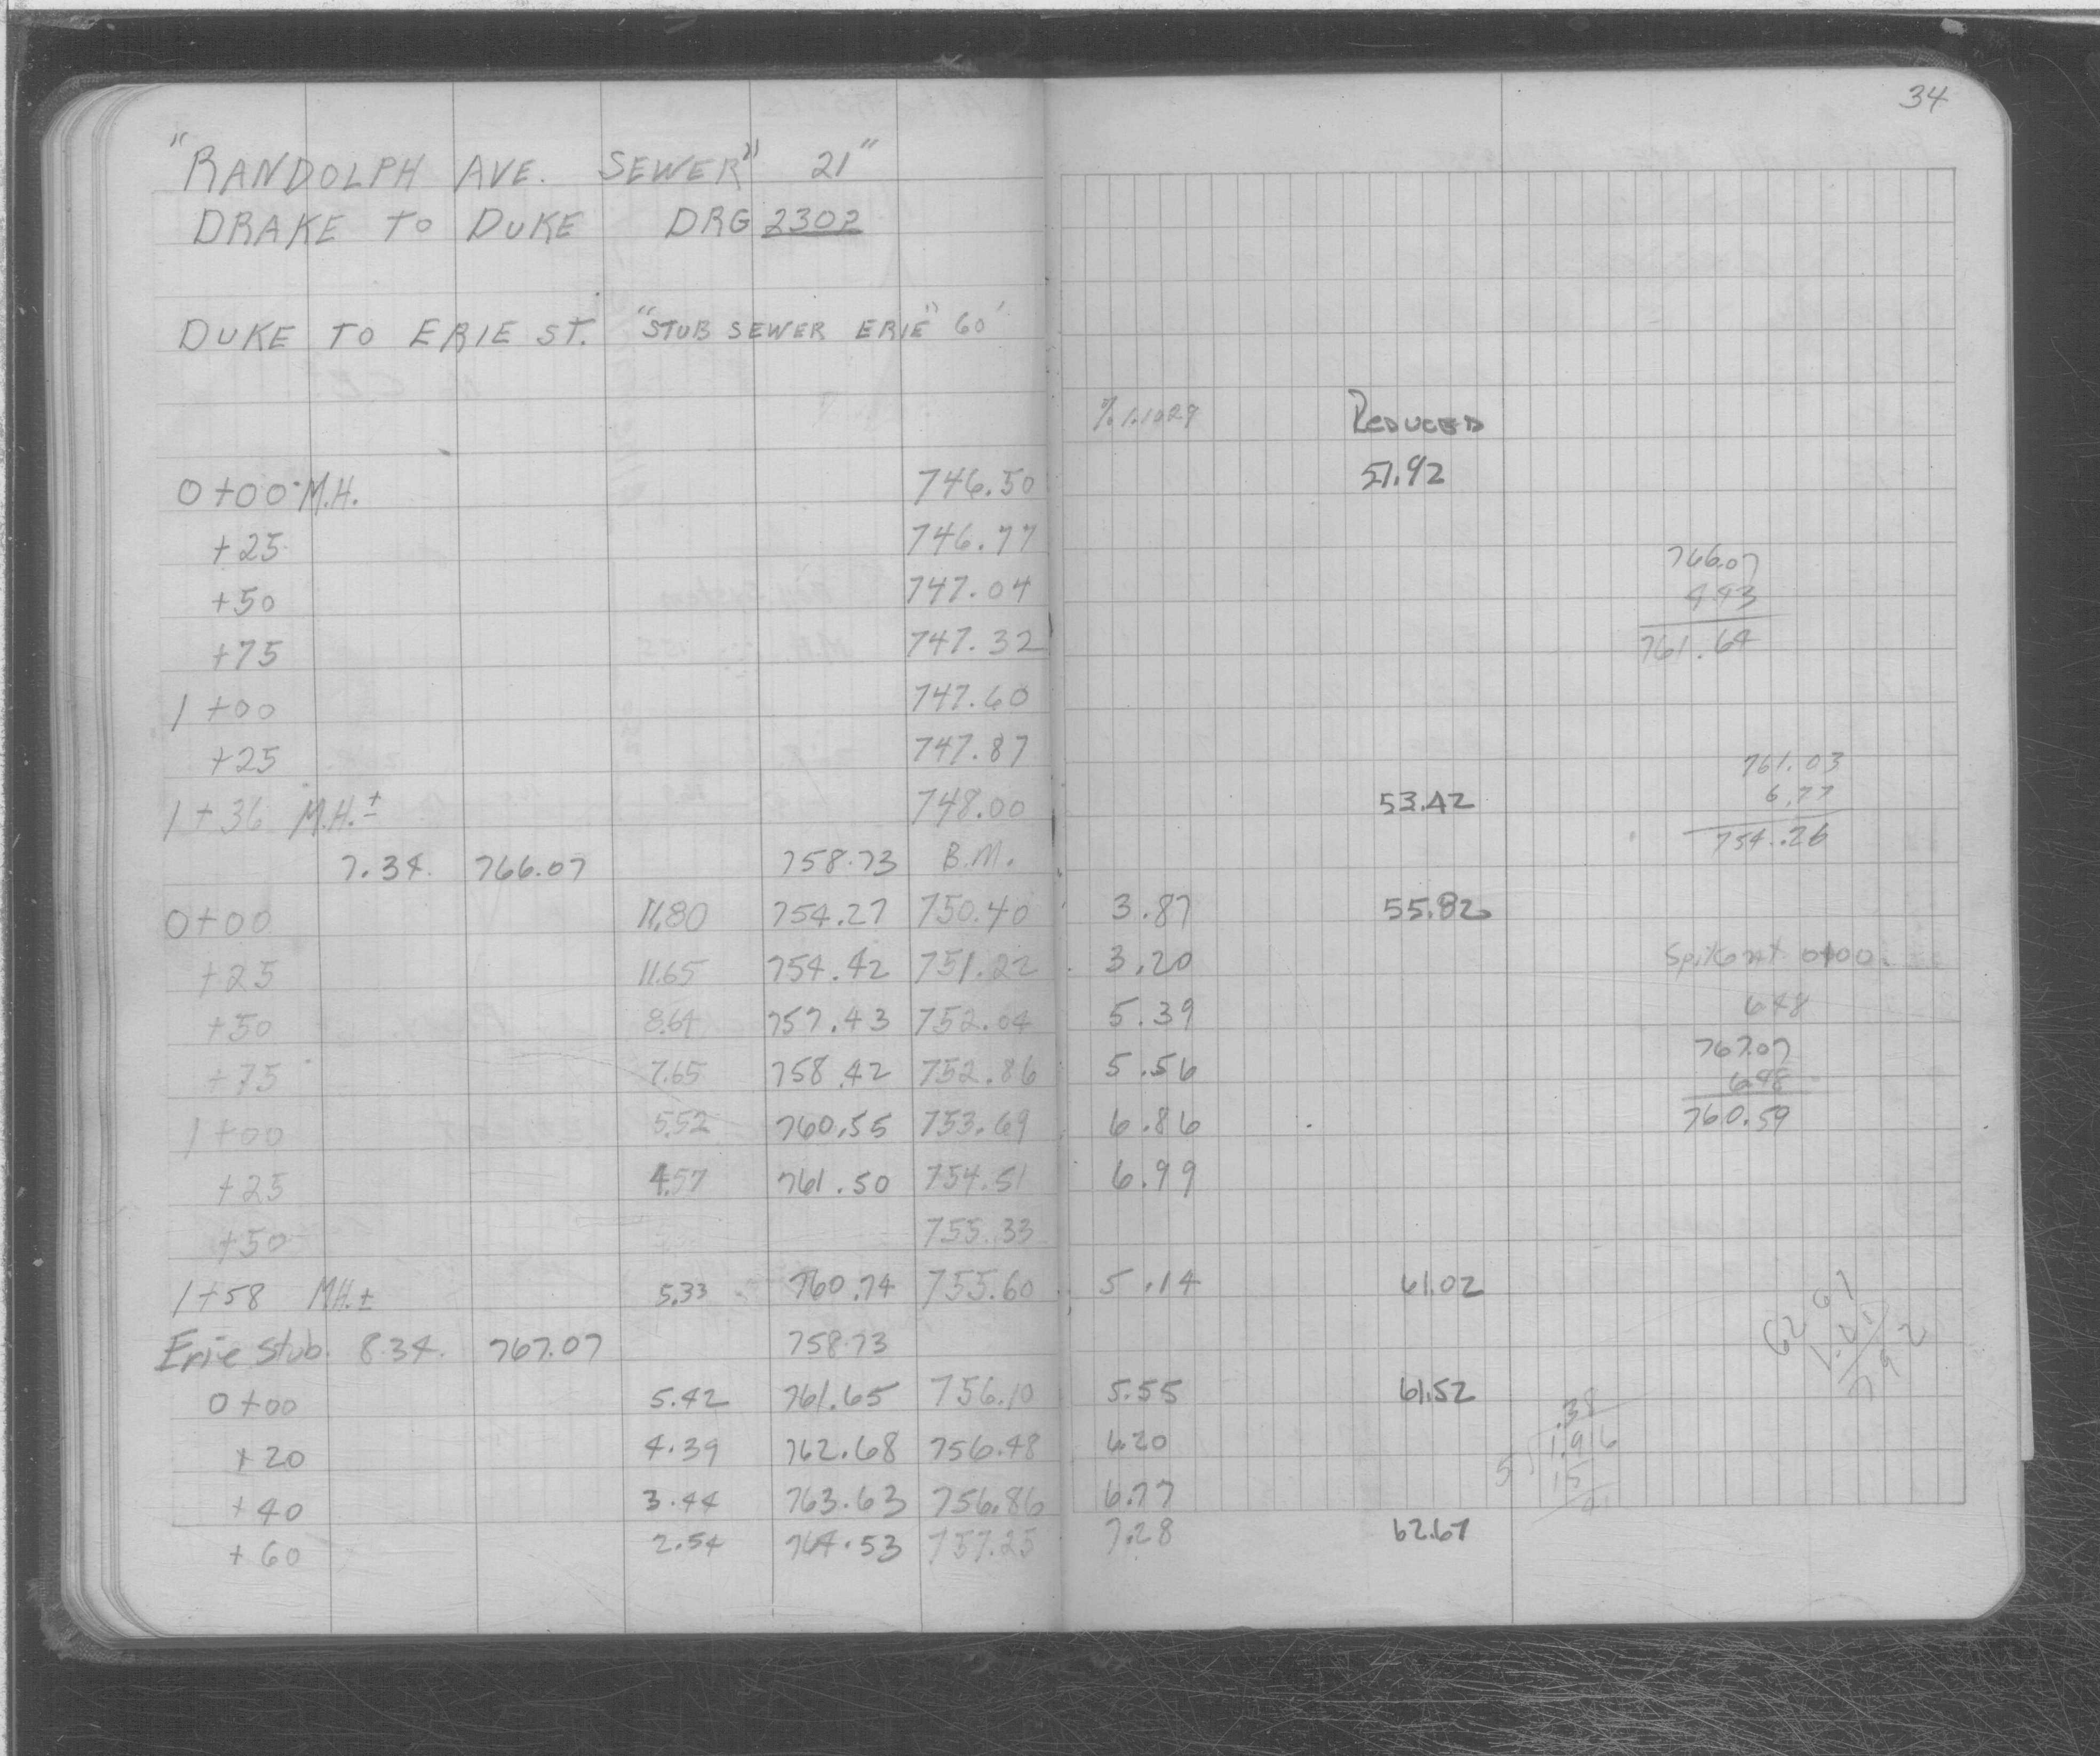 34
"RANDOLPH AVE. SEWER" 21"
DRAKE TO DUKE DRG 2302
DUKE TO ERIE ST. "STUB SEWER ERIE" 60'
% 1.1029 REDUCED
0+00 M.H. 746.50 51.92
+25 746.77
+50 747.04
+75 747.32
1+00 747.60
+25 747.87
1+36 M.H.± 748.00 53.42
7.34 766.07 758.73 B.M.
0+00 11.80 754.27 750.40 3.87 55.82
+25 11.65 754.42 751.22 3.20
+50 8.64 757.43 752.04 5.39
+75 7.65 758.42 752.86 5.56
1+00 5.52 760.55 753.69 6.86
+25 4.57 761.50 754.51 6.99
+50 755.33
1+58 MH.± 5.33 760.74 755.60 5.14 61.02
Erie Stub. 8.34. 767.07 758.73
0+00 5.42 761.65 756.10 5.55 61.52
+20 4.39 762.68 756.48 6.20
+40 3.44 763.63 756.86 6.77
+60 2.54 764.53 757.25 7.28 62.67
766.07
4.43
761.64
761.03
6.77
754.26
0+00.
6.48
767.07
6.48
760.59
.38
5 1.916
15